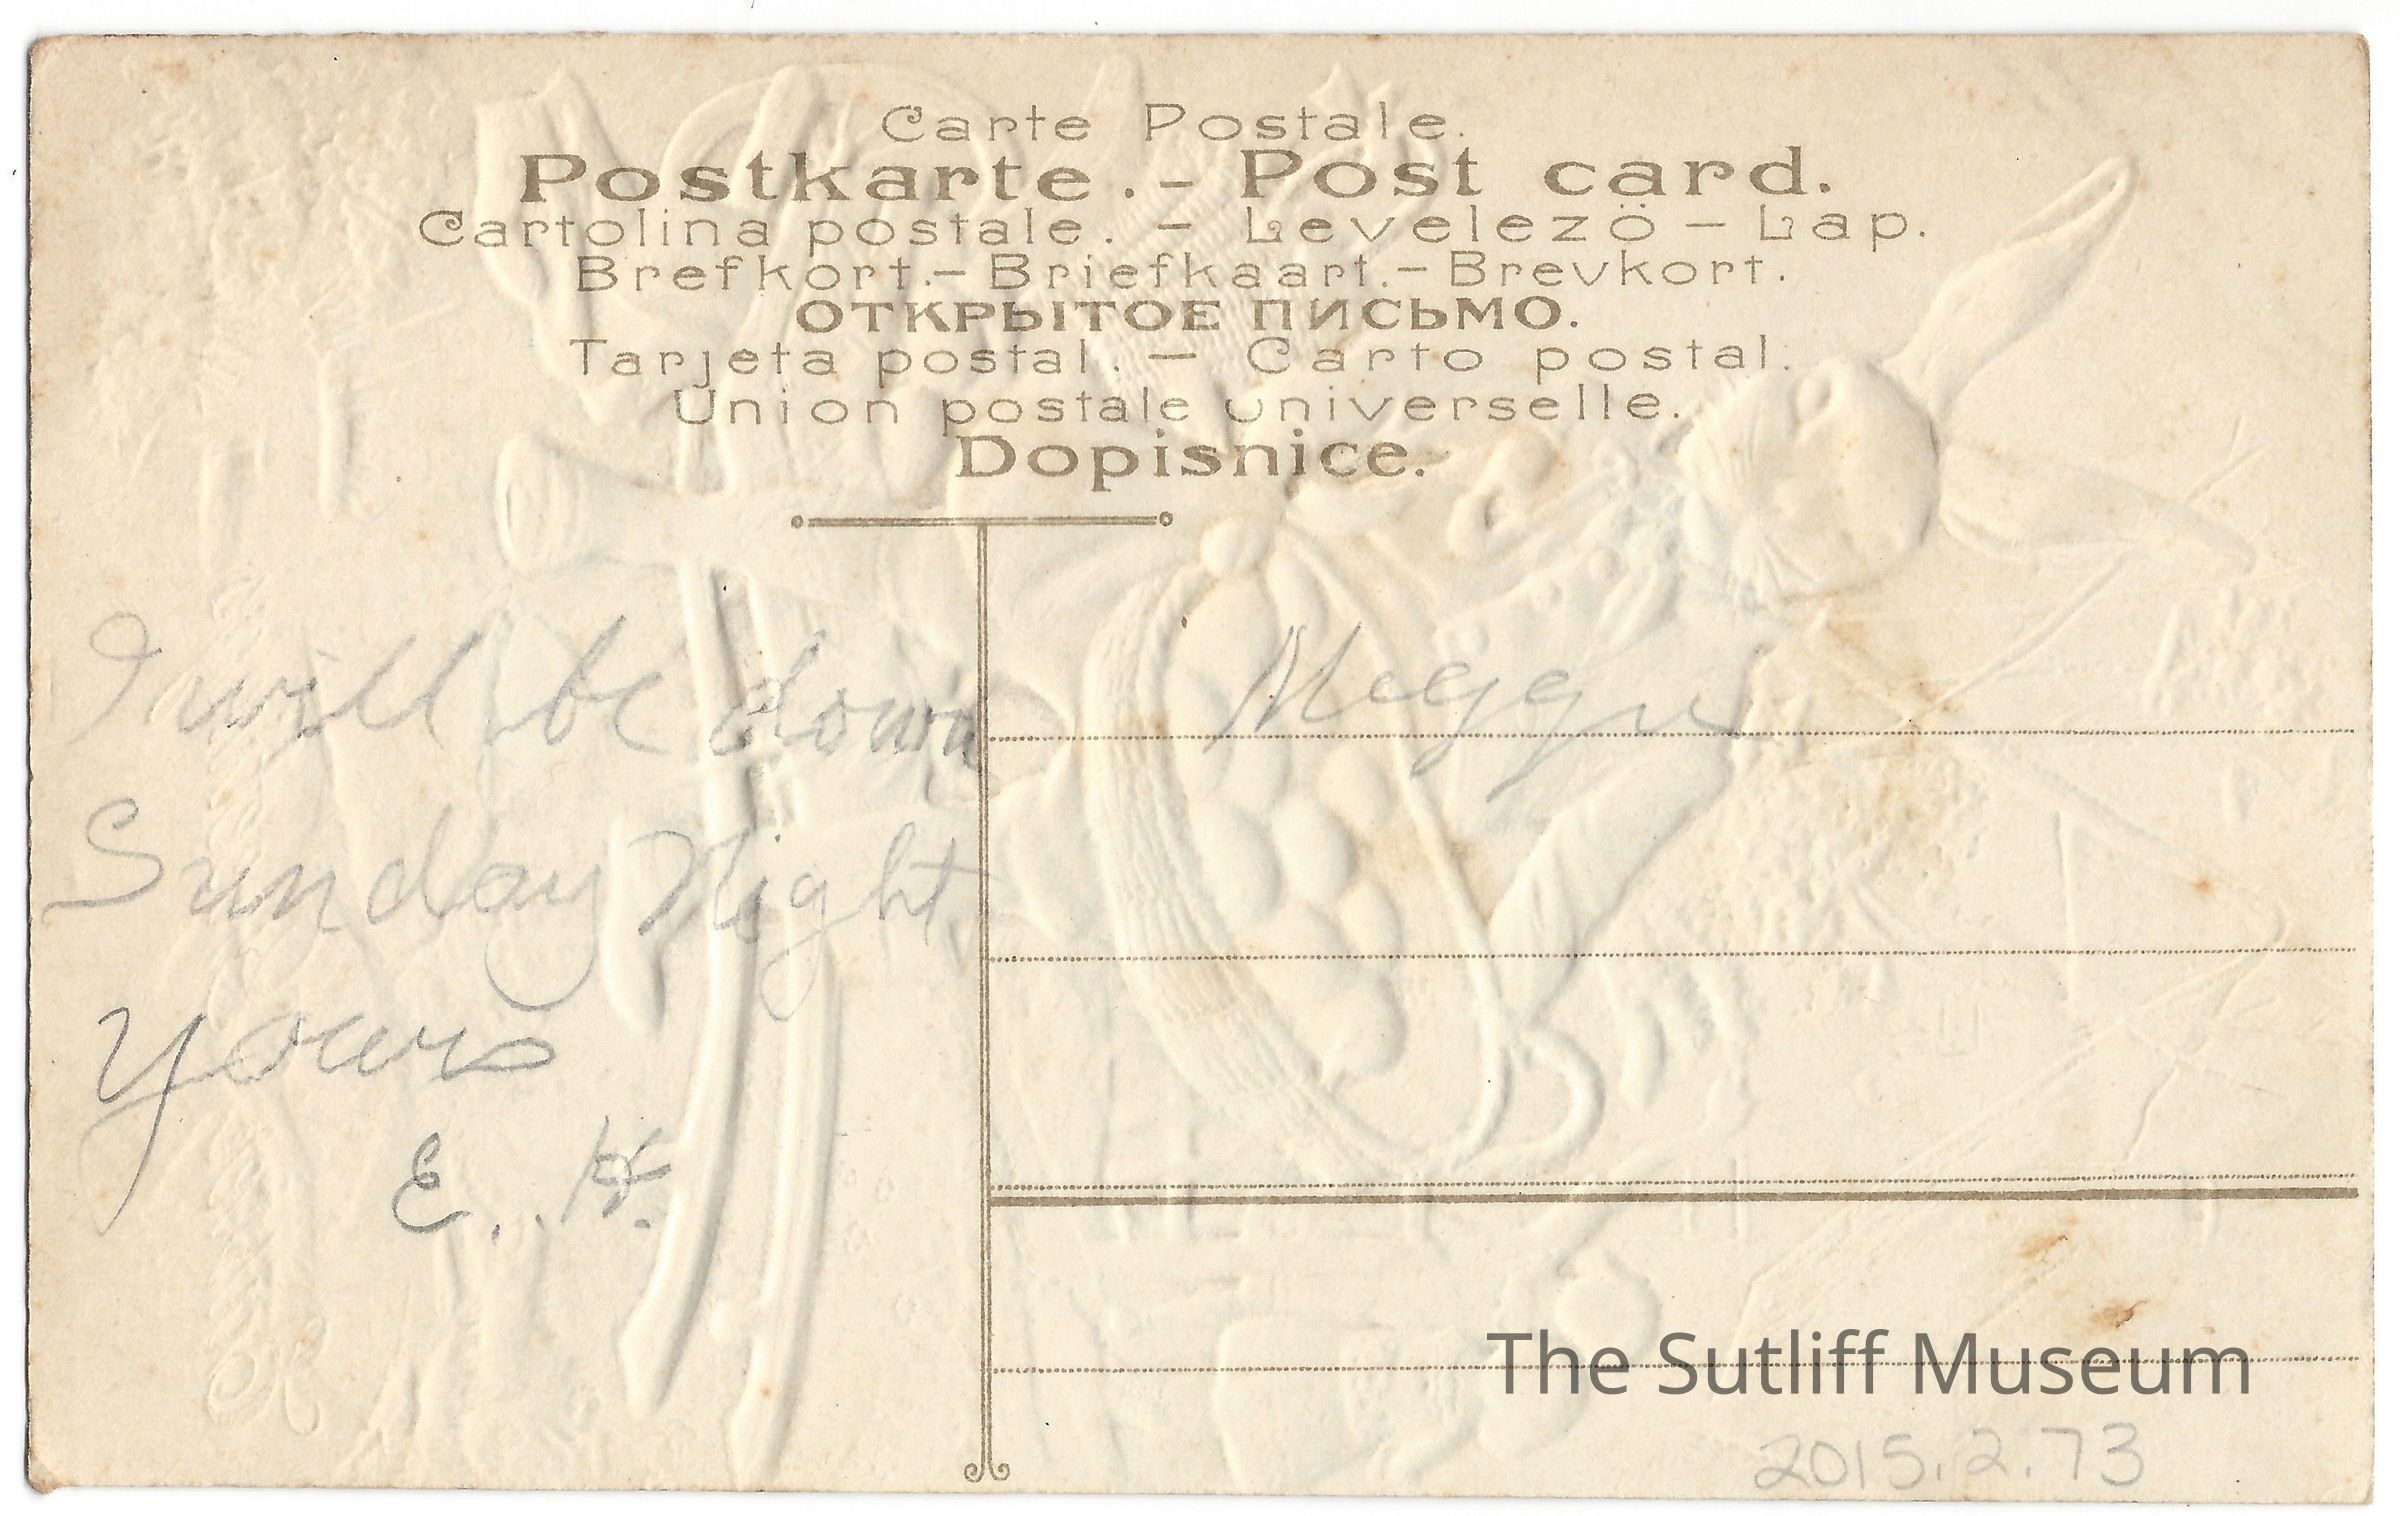 Carte Postale.
Postkarte.- Post card.
Cartolina postale. - Levelezö - Lap.
Brefkort.- Briefkaart.- Brevkort.
ОТКРЫТОЕ ПИСЬМО.
Tarjeta postal. - Carto postal.
Union postale universelle.
Dopisnice.
I will be down
Sunday Night
Yours
E. H.
Meggie
The Sutliff Museum
2015.2.73